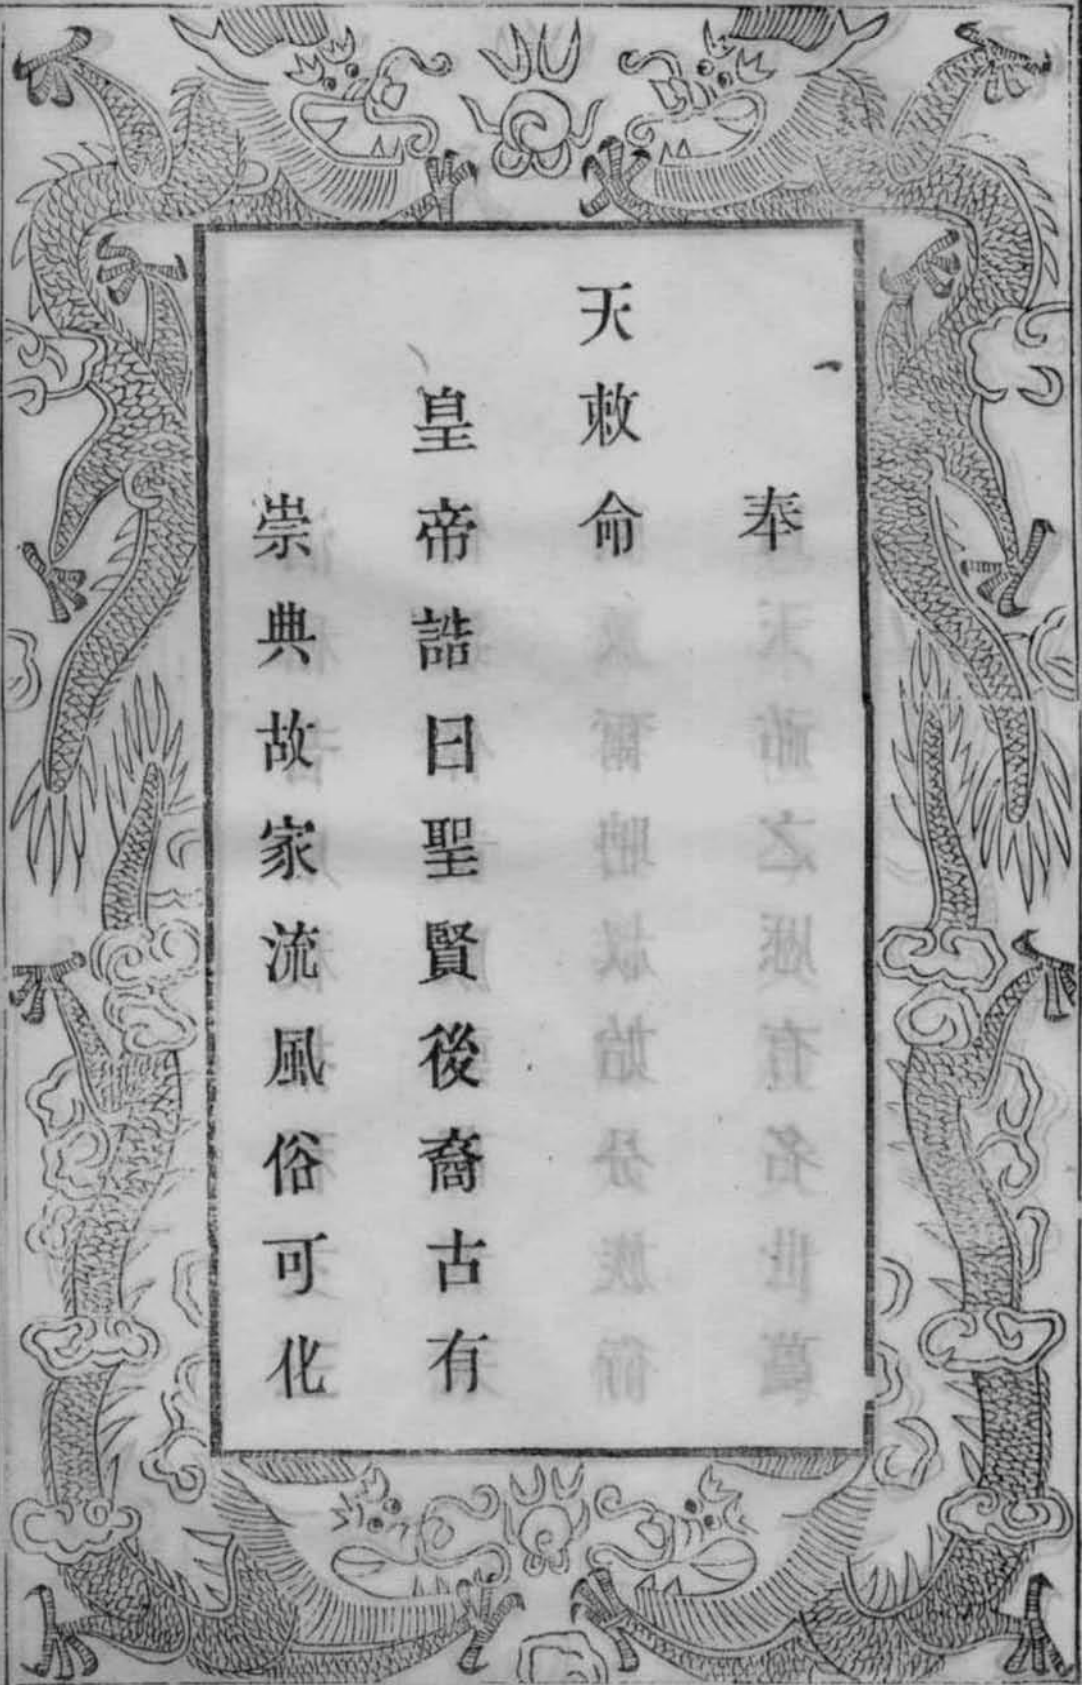 奉
天敕命
皇帝誥曰聖賢後裔古有
崇典故家流風俗可化